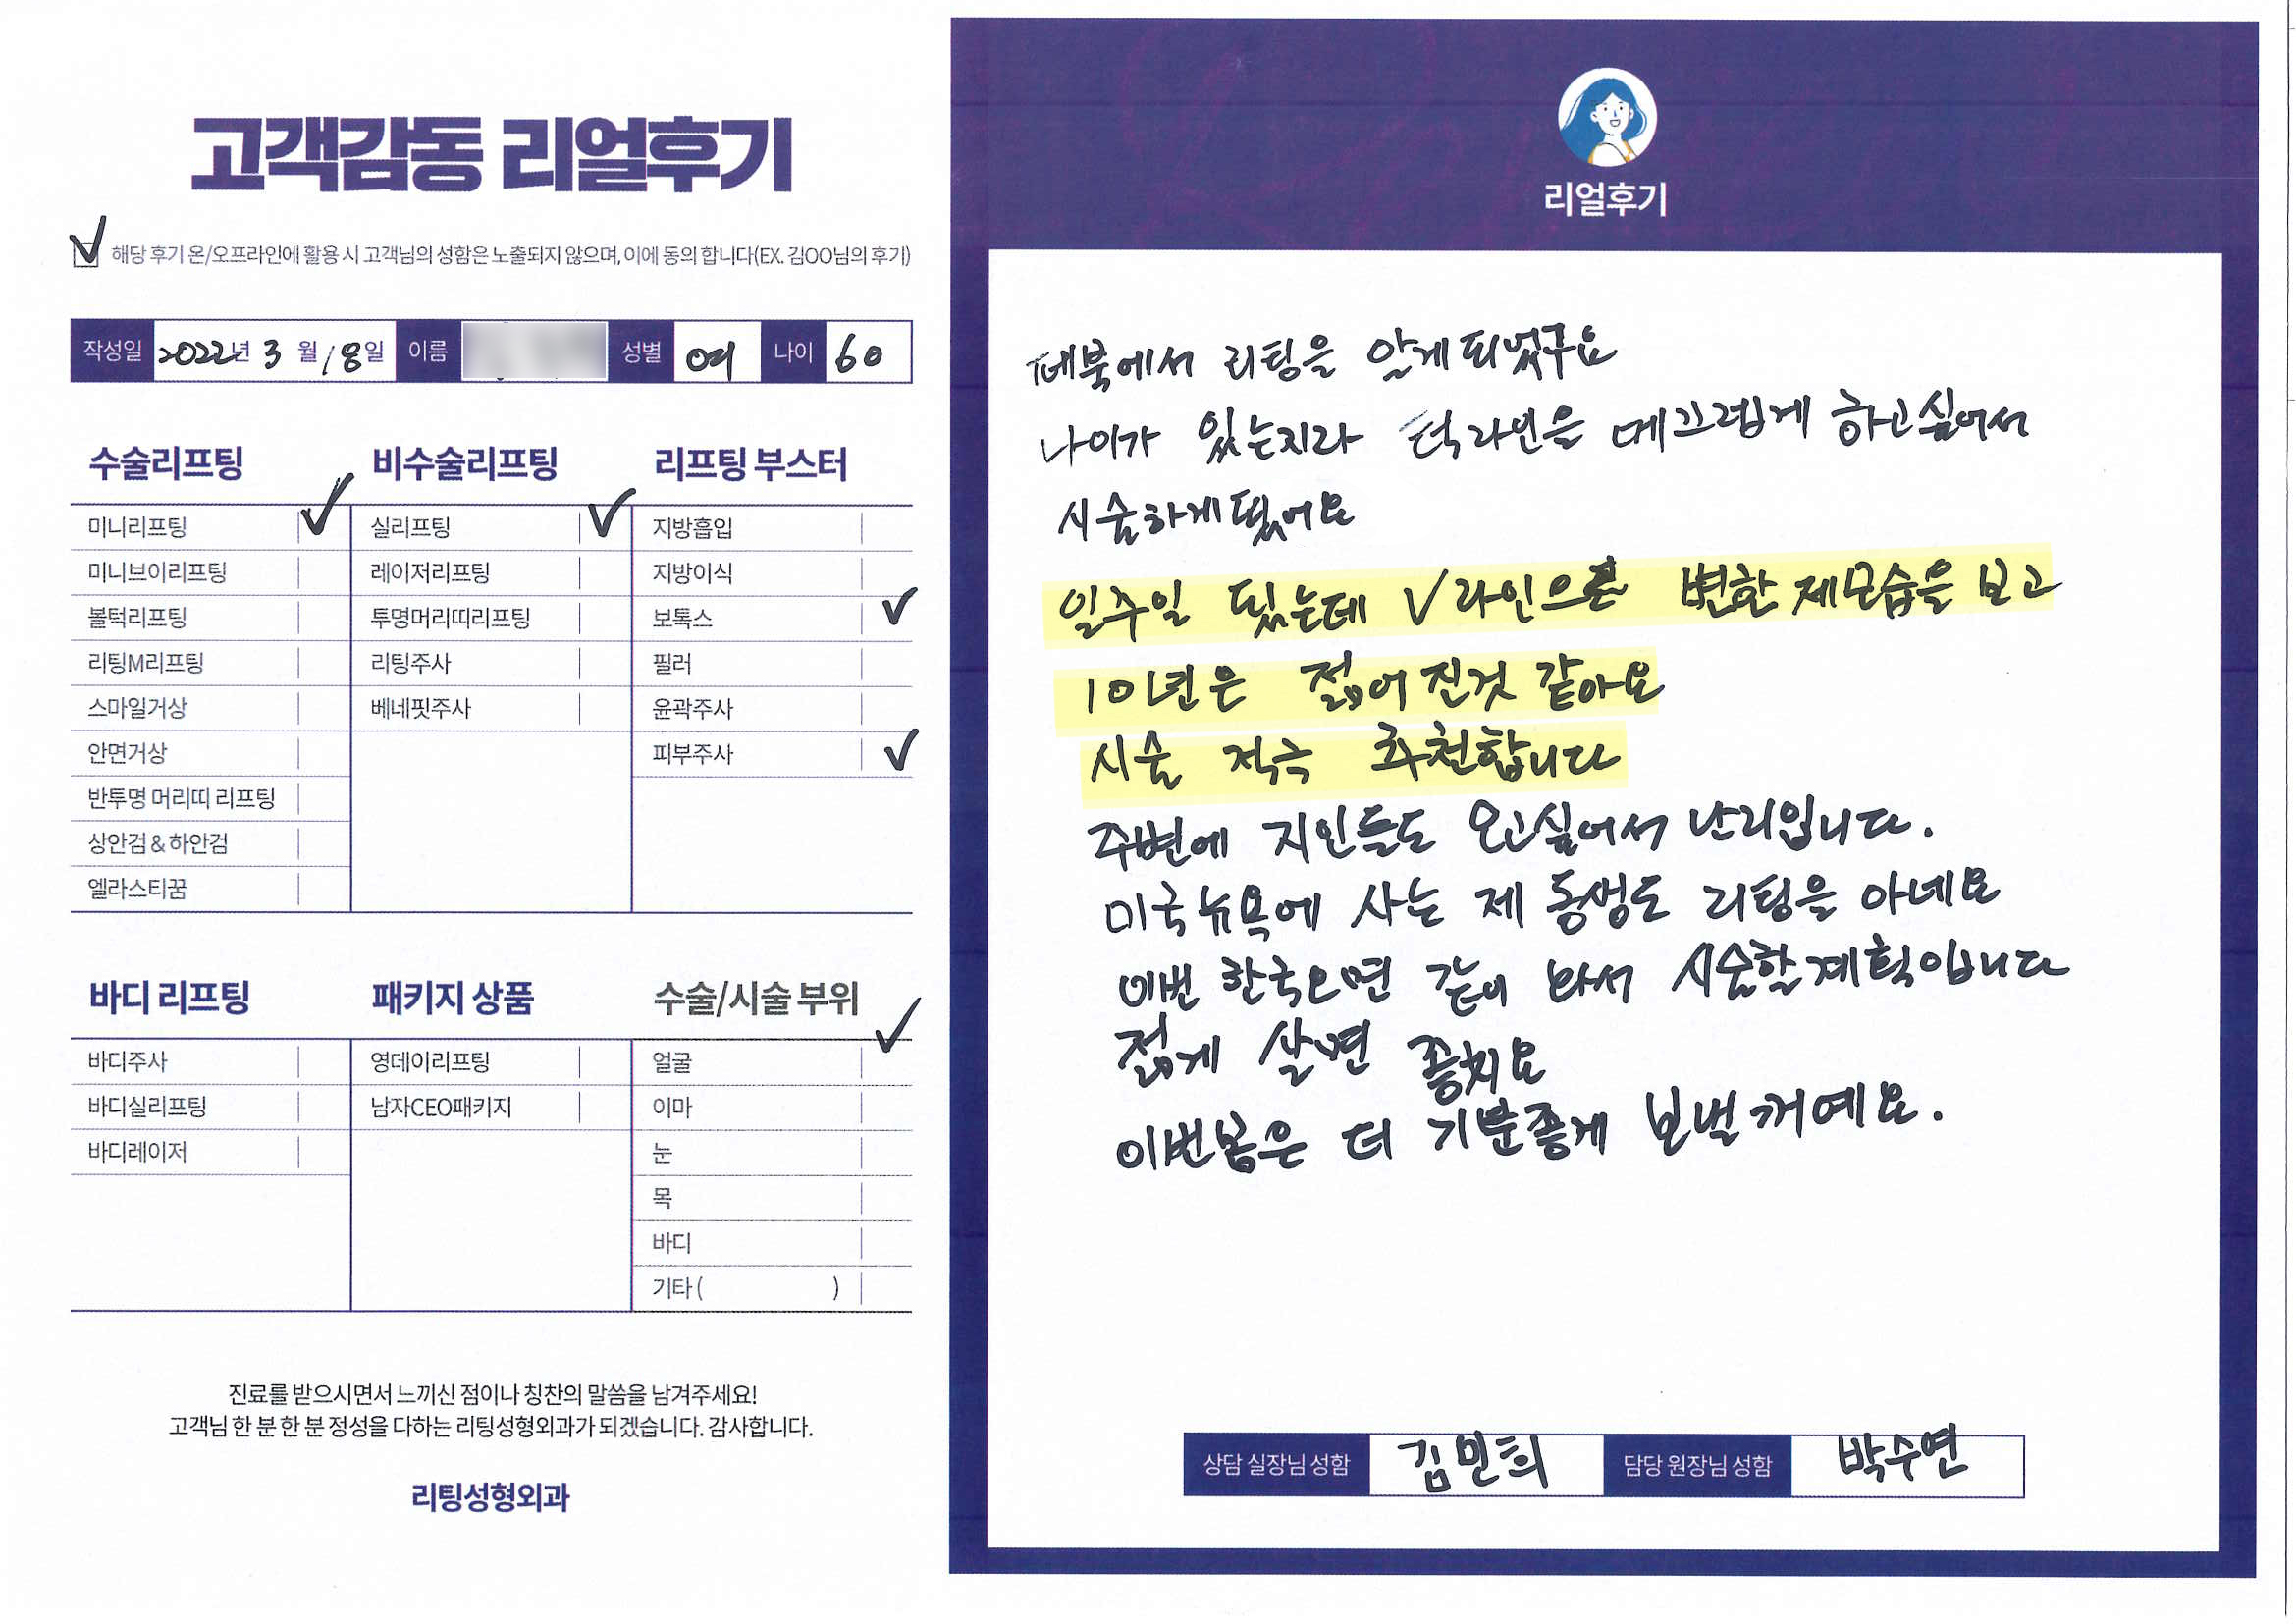 고객감동 리얼후기
해당 후기 온/오프라인에 활용 시 고객님의 성함은 노출되지 않으며, 이에 동의 합니다(EX. 김OO님의 후기)
작성일 2022년 3월 18일 이름 성별 여 나이 60
수술리프팅
미니리프팅
미니브이리프팅
볼턱리프팅
리팅M리프팅
스마일거상
안면거상
반투명 머리띠 리프팅
상안검 & 하안검
엘라스티꿈
비수술리프팅
실리프팅
레이저리프팅
투명머리띠리프팅
리팅주사
베네핏주사
리프팅 부스터
지방흡입
지방이식
보톡스
필러
윤곽주사
피부주사
바디 리프팅
바디주사
바디실리프팅
바디레이저
패키지 상품
영데이리프팅
남자CEO패키지
수술/시술 부위
얼굴
이마
눈
목
바디
기타 ( )
진료를 받으시면서 느끼신 점이나 칭찬의 말씀을 남겨주세요!
고객님 한 분 한 분 정성을 다하는 리팅성형외과가 되겠습니다. 감사합니다.
리팅성형외과
리얼후기
페북에서 리팅을 알게 되었구요
나이가 있는지라 턱라인을 메끄럽게 하고싶어서
시술하게됬어요
일주일 됬는데 V라인으로 변한 제모습을 보고
10년은 젊어진것 같아요
시술 적극 추천합니다
주변에 지인들도 오고싶어서 난리입니다.
미국뉴욕에 사는 제 동생도 리팅을 아네요
이번 한국오면 같이 와서 시술할계획입니다
젊게 살면 좋치요
이번봄은 더 기분좋게 보낼꺼예요.
상담 실장님 성함 김민희 담당 원장님 성함 박수연